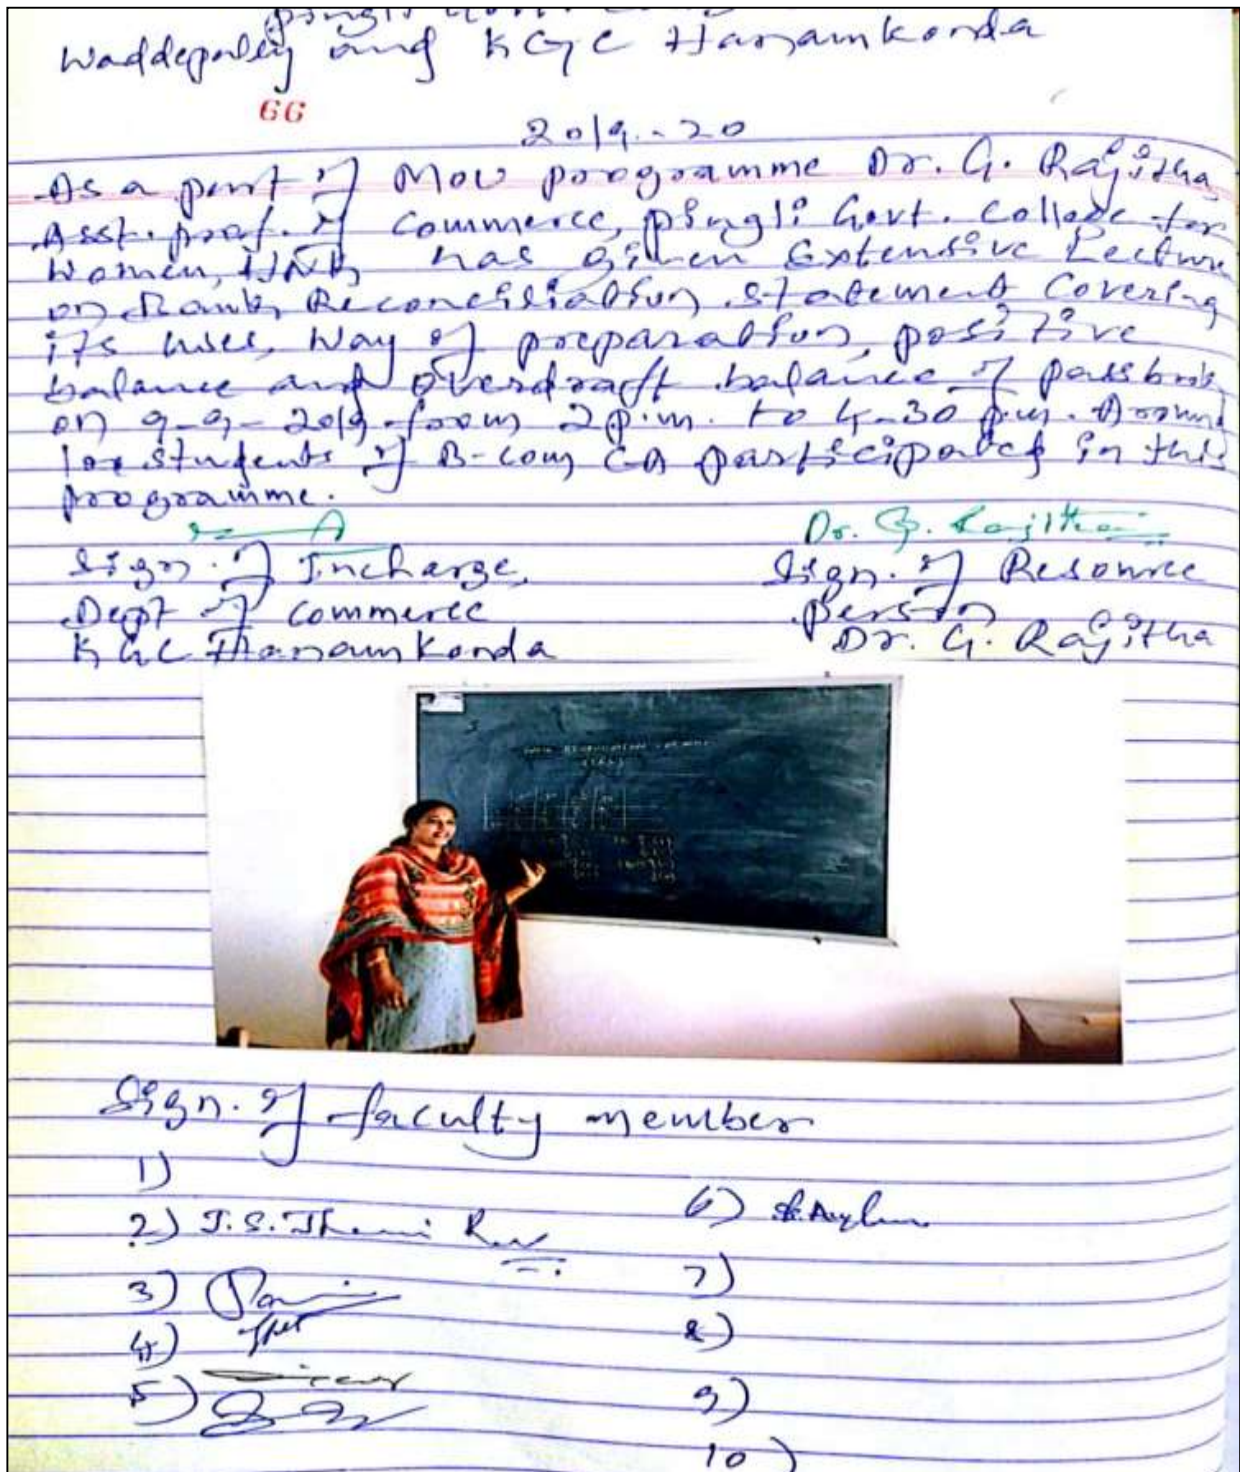 Waddepally and KGC Hanamkonda
66
2019-20
As a part of MOU programme Dr. G. Rajitha,
Asst. prof. of Commerce, pingli Govt. College for
Women, HNK, has given Extensive Lecture
on Bank Reconciliation Statement Covering
its uses, Way of preparation, positive
balance and overdraft balance of passbook
on 9-9-2019 from 2 p.m. to 4-30 p.m. Around
students of B-Com CA participated in this
programme.
Dr. G. Rajitha
Sign. of Incharge,
Sign. of Resource
Dept of Commerce
person
KGC Hanamkonda
Dr. G. Rajitha
Sign. of faculty member
1)
2) T.S.
3)
4)
5)
6)
7)
8)
9)
10)